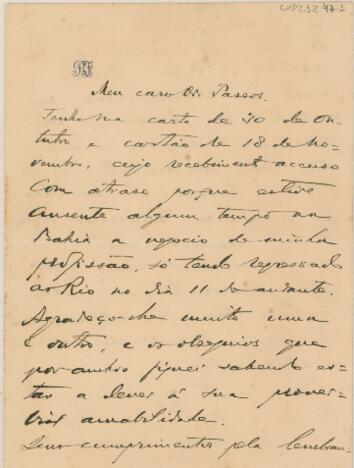 CMP2.1.2.47-1
Meu caro Dr. Passos.
Tenho sua carta de 30 de Ou-
tubro e cartão de 18 de No-
vembro, cujo recebimento accuso
com atraso porque estive
ausente algum tempo na
Bahia a negocio de minha
profissão, só tendo regressado
ao Rio no dia 11 do andante.
Agradeço-lhe muito uma
e outro, e os obsequios que
por ambos fiquei sabendo es-
tar a dever á sua prover-
bial amabilidade.
Seus cumprimentos pela lembran-